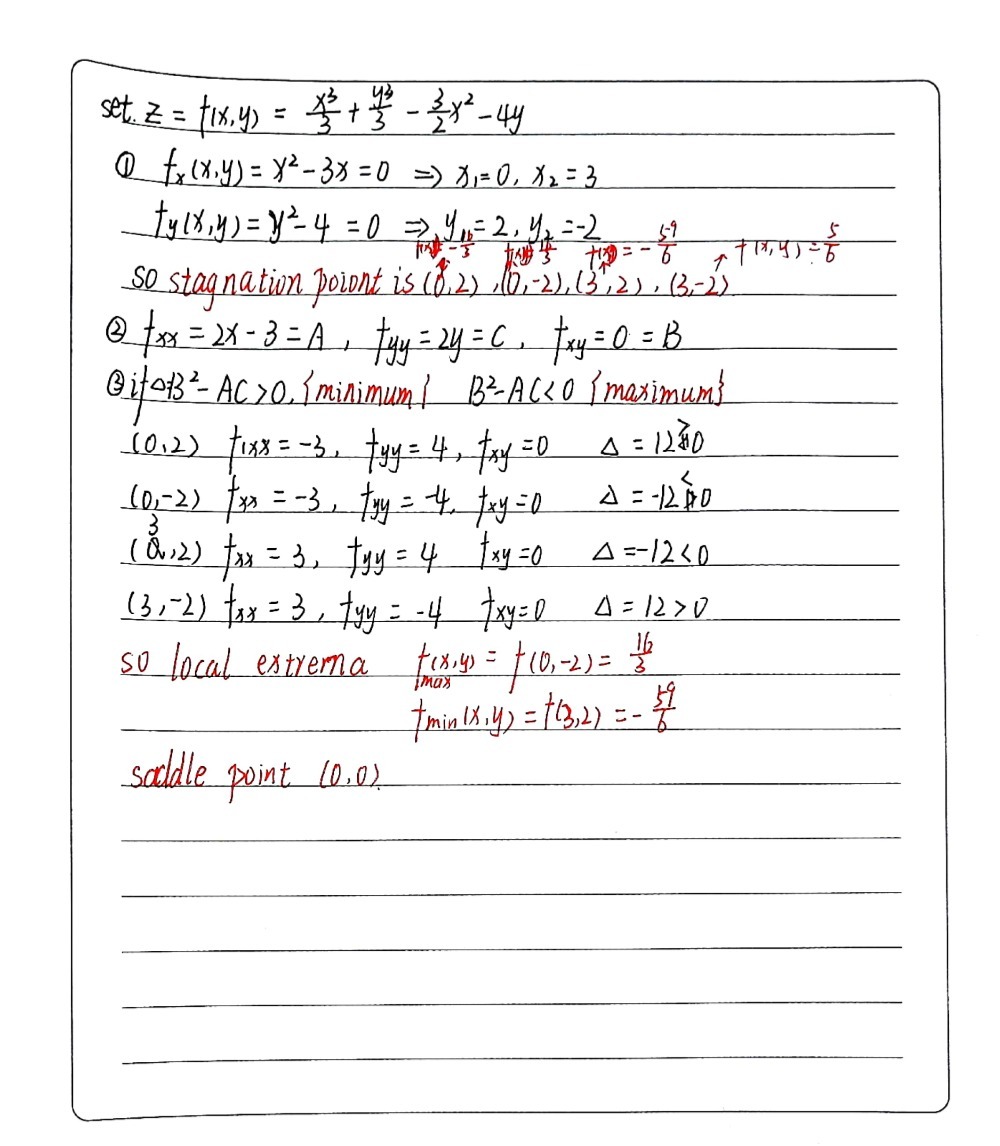 set. z = f(x,y) = x³/3 + y³/3 - 3/2 x² - 4y
① fx(x,y) = x² - 3x = 0 ⇒ x₁=0, x₂=3
fy(x,y) = y² - 4 = 0 ⇒ y₁=2, y₂=-2
-16/3 16/3 = -59/6 f(x,y) = 5/6
so stagnation poiont is (0,2), (0,-2), (3,2), (3,-2)
② fxx = 2x - 3 = A, fyy = 2y = C, fxy = 0 = B
③ if Δ=B² - AC > 0, {minimum} B² - AC < 0 {maximum}
(0,2) fxx = -3, fyy = 4, fxy = 0 Δ = 12 > 0
(0,-2) fxx = -3, fyy = -4, fxy = 0 Δ = -12 < 0
(3,2) fxx = 3, fyy = 4 fxy = 0 Δ = -12 < 0
(3,-2) fxx = 3, fyy = -4 fxy = 0 Δ = 12 > 0
so local extrema fmax(x,y) = f(0,-2) = 16/3
fmin(x,y) = f(3,2) = -59/6
saddle point (0,0).